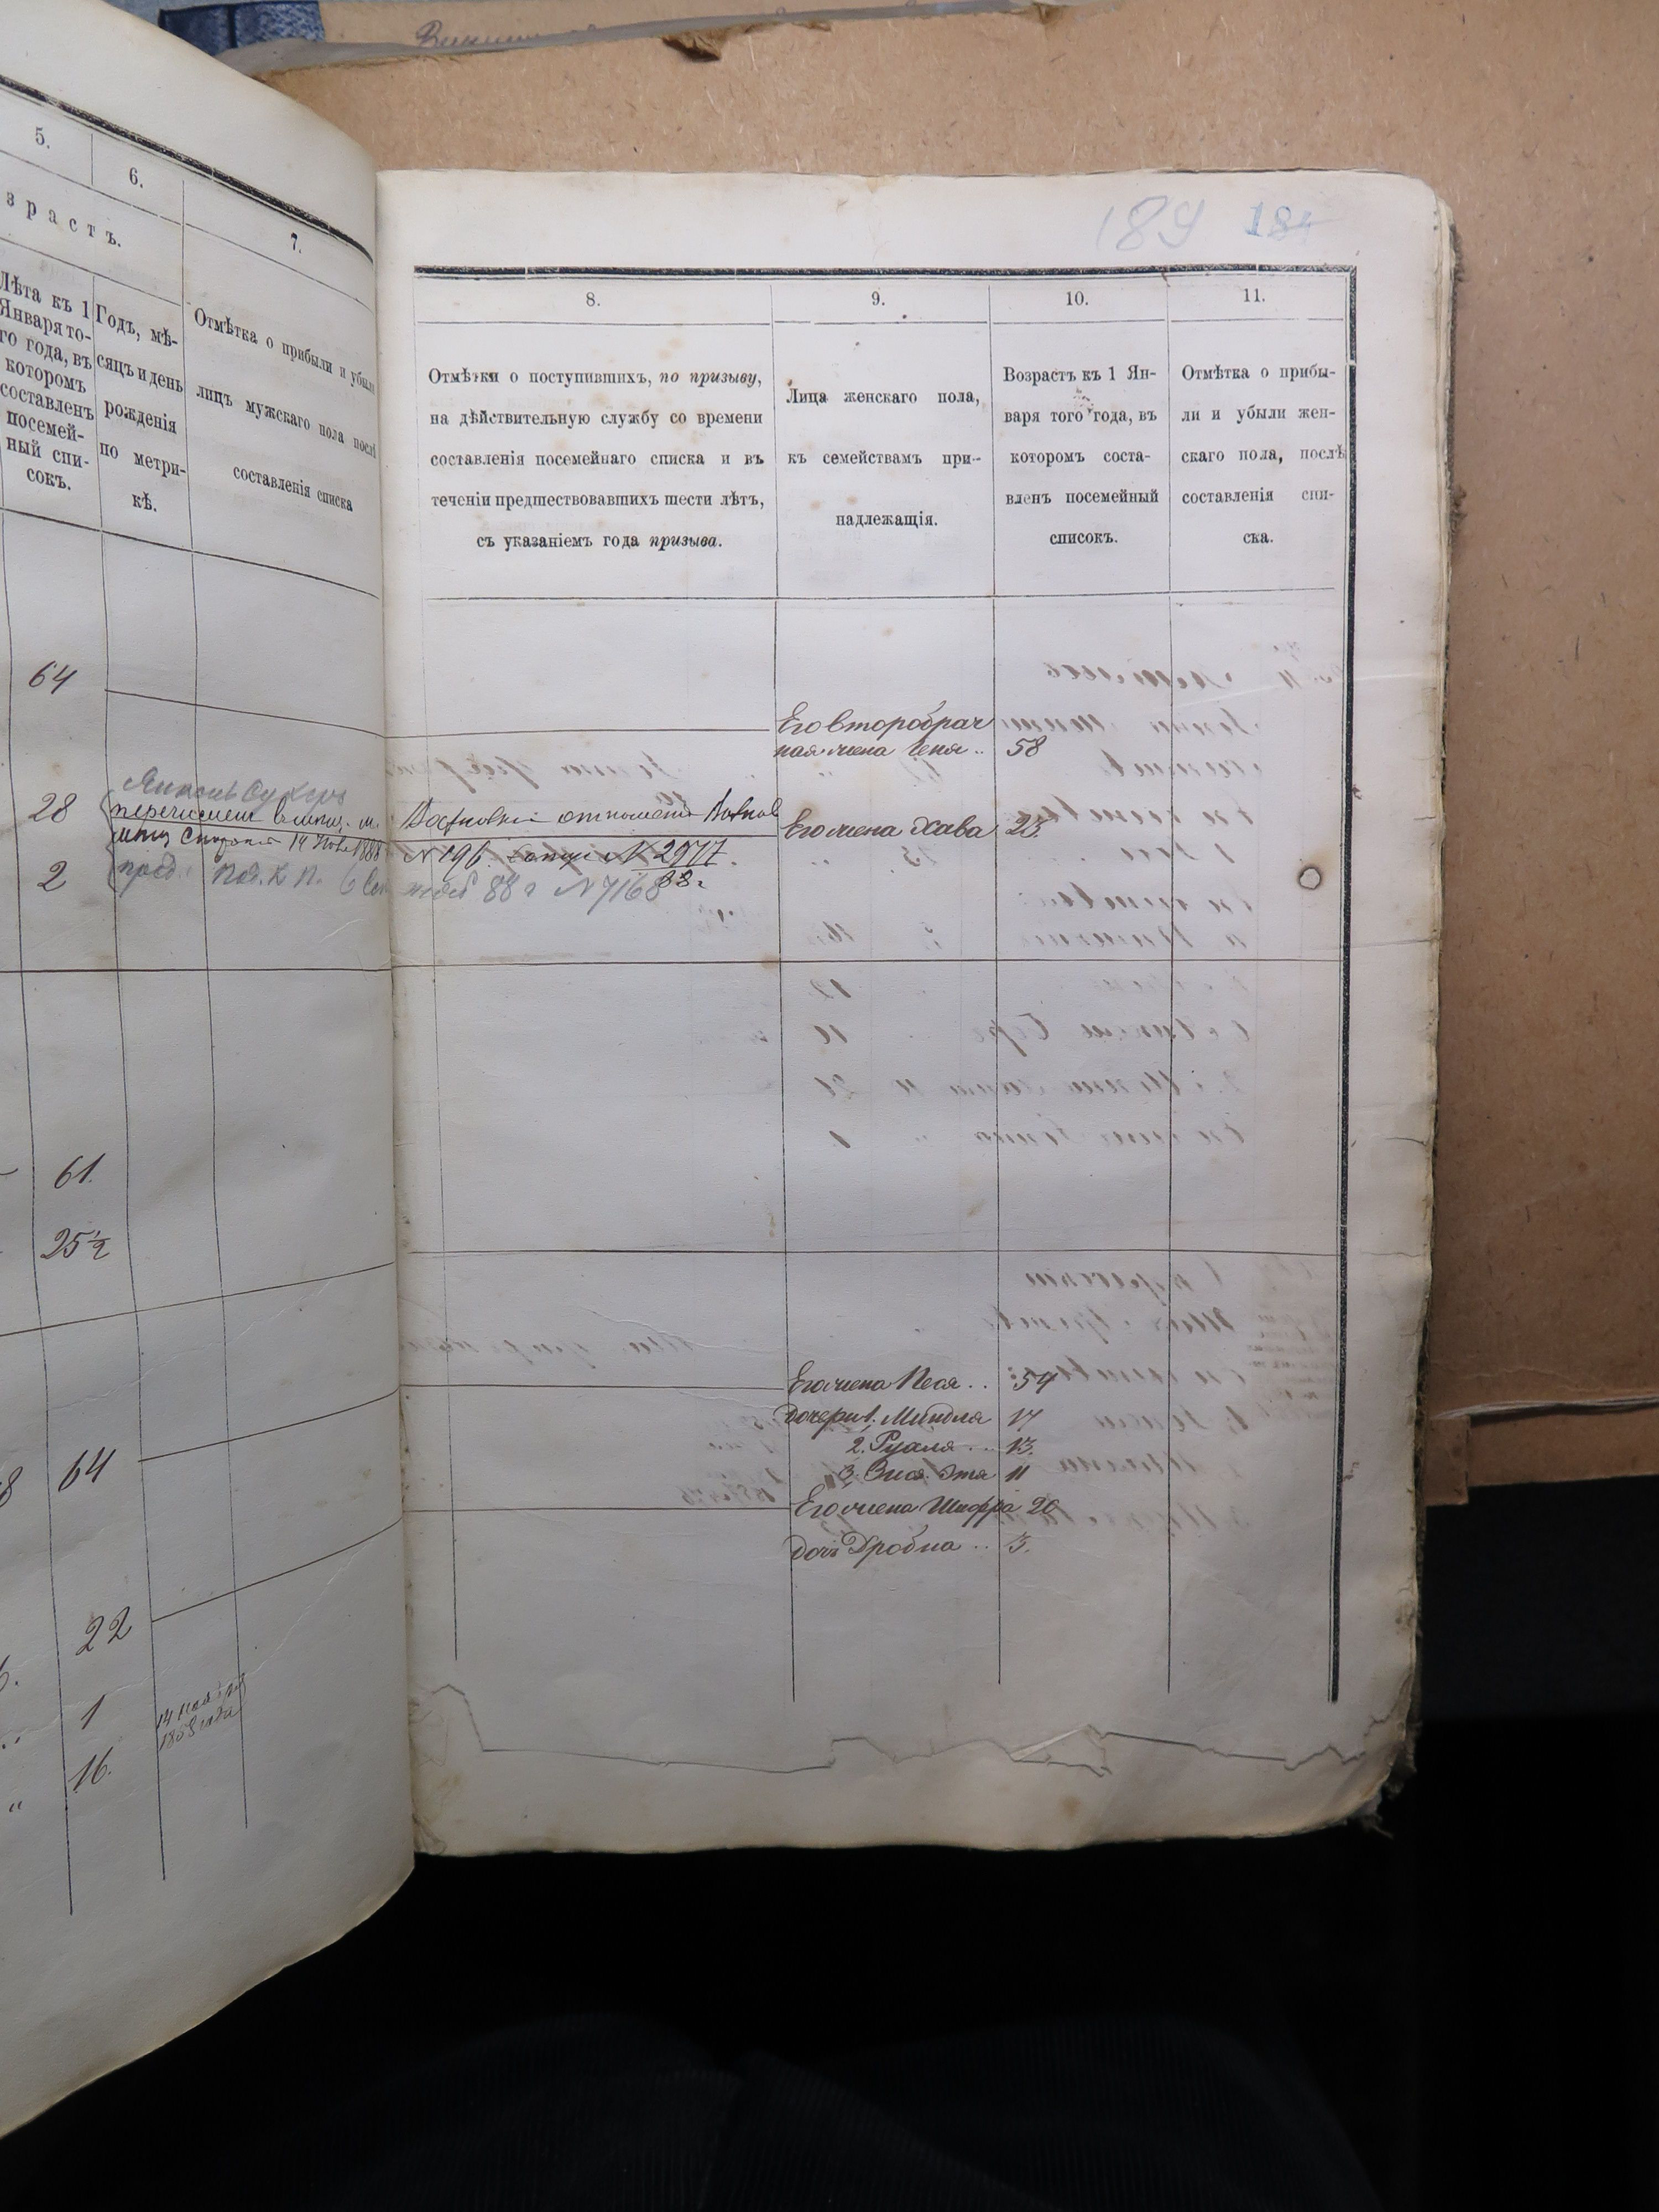 5.
6.
7.
зрастъ.
Лѣта къ 1
Января то-
го года, въ
которомъ
составленъ
посемей-
ный спи-
сокъ.
Годъ, мѣ-
сяцъ и день
рожденія
по метри-
кѣ.
Отмѣтка о прибыли и убыли
лицъ мужскаго пола послѣ
составленія списка
64
28
перечислен
1888
2
61.
25½
64
22
1
16.
189 184
8.
9.
10.
11.
Отмѣтки о поступившихъ, по призыву,
на дѣйствительную службу со времени
составленія посемейнаго списка и въ
теченіи предшествовавшихъ шести лѣтъ,
съ указаніемъ года призыва.
Лица женскаго пола,
къ семействамъ при-
надлежащія.
Возрастъ къ 1 Ян-
варя того года, въ
которомъ соста-
вленъ посемейный
списокъ.
Отмѣтка о прибы-
ли и убыли жен-
скаго пола, послѣ
составленія спи-
ска.
Его второбрач
ная жена Геня .. 58
Его жена Хава 23.
N 196 N 2977
88 г N 7168 88 г
Его жена Песя .. 54
дочери 1. Миндля 17
2. Рухля ... 13.
3. Этя 11
Его жена Шифра 20
дочь Дробна .. 3.